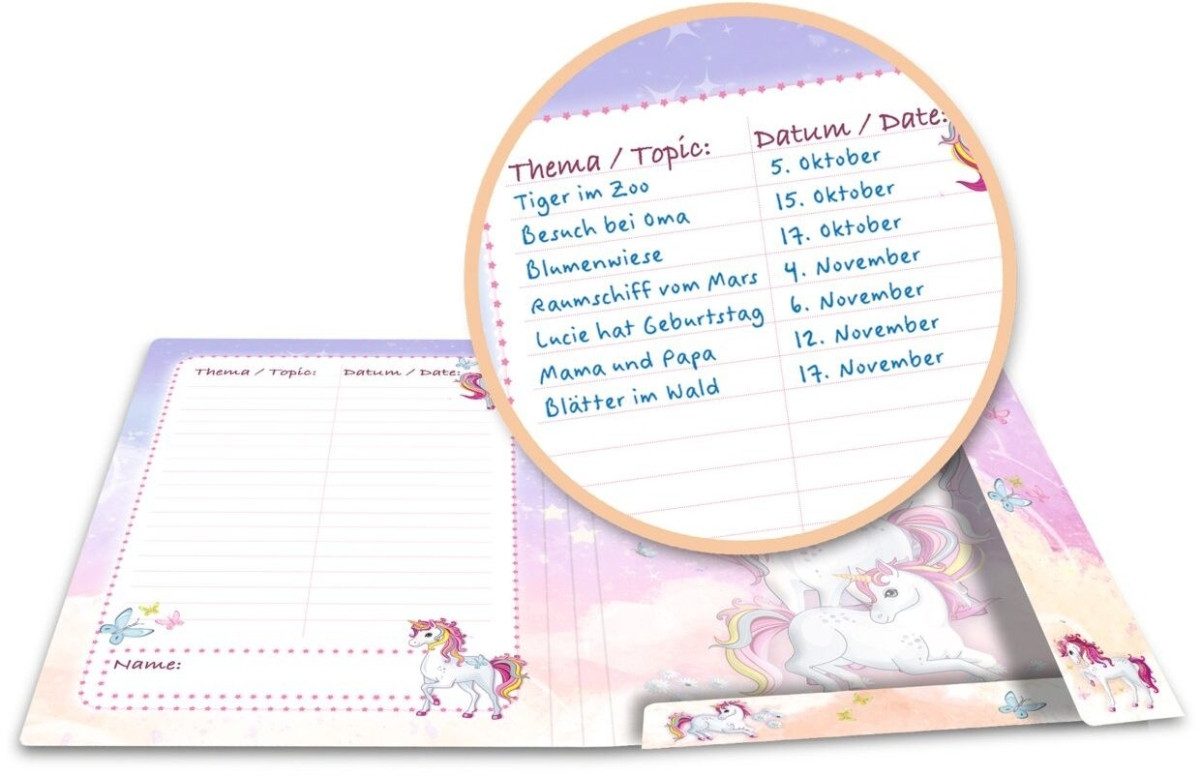 Thema / Topic: Datum / Date:
Tiger im Zoo 5. Oktober
Besuch bei Oma 15. Oktober
Blumenwiese 17. Oktober
Raumschiff vom Mars 4. November
Lucie hat Geburtstag 6. November
Mama und Papa 12. November
Blätter im Wald 17. November
Thema / Topic: Datum / Date:
Name: